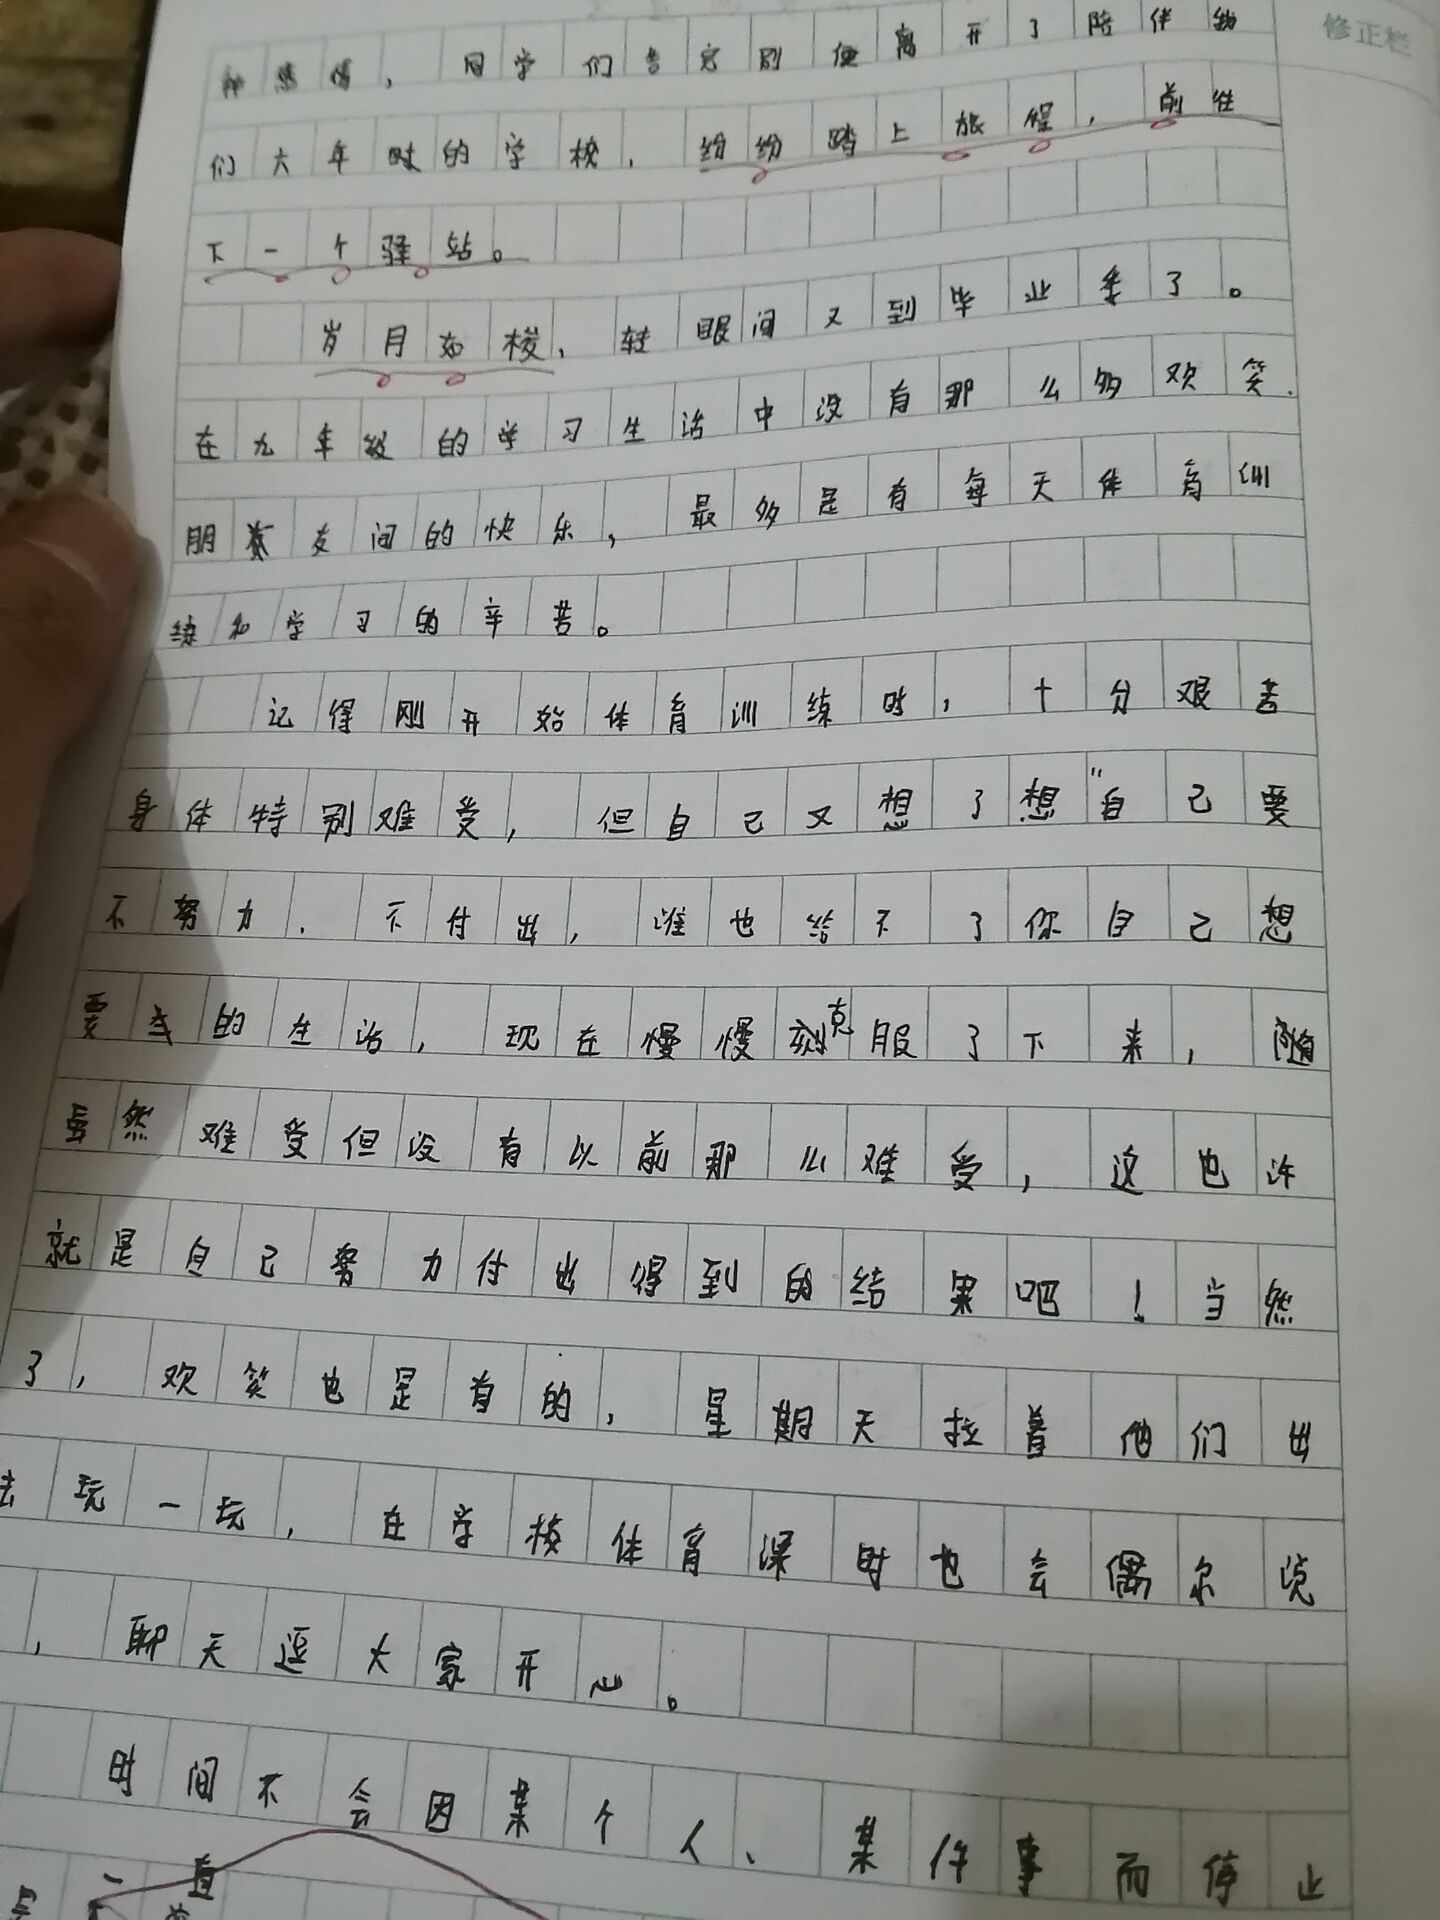 修正栏
种悲情，同学们告完别便离开了陪伴她
们六年时的学校，纷纷踏上旅程，前往
下一个驿站。
岁月如梭，转眼间又到毕业季了。
在九年级的学习生活中没有那么多欢笑.
朋友间的快乐，最多是有每天体育训
练和学习的辛苦。
记得刚开始体育训练时，十分艰苦
身体特别难受，但自己又想了想"自己要
不努力．不付出，谁也给不了你自己想
要的生活，现在慢慢克服了下来，
虽然难受但没有以前那么难受，这也许
就是自己努力付出得到的结果吧！当然
了，欢笑也是有的，星期天拉着他们出
去玩一玩，在学校体育课时也会偶尔说
，聊天逗大家开心。
时间不会因某个人、某件事而停止
一直